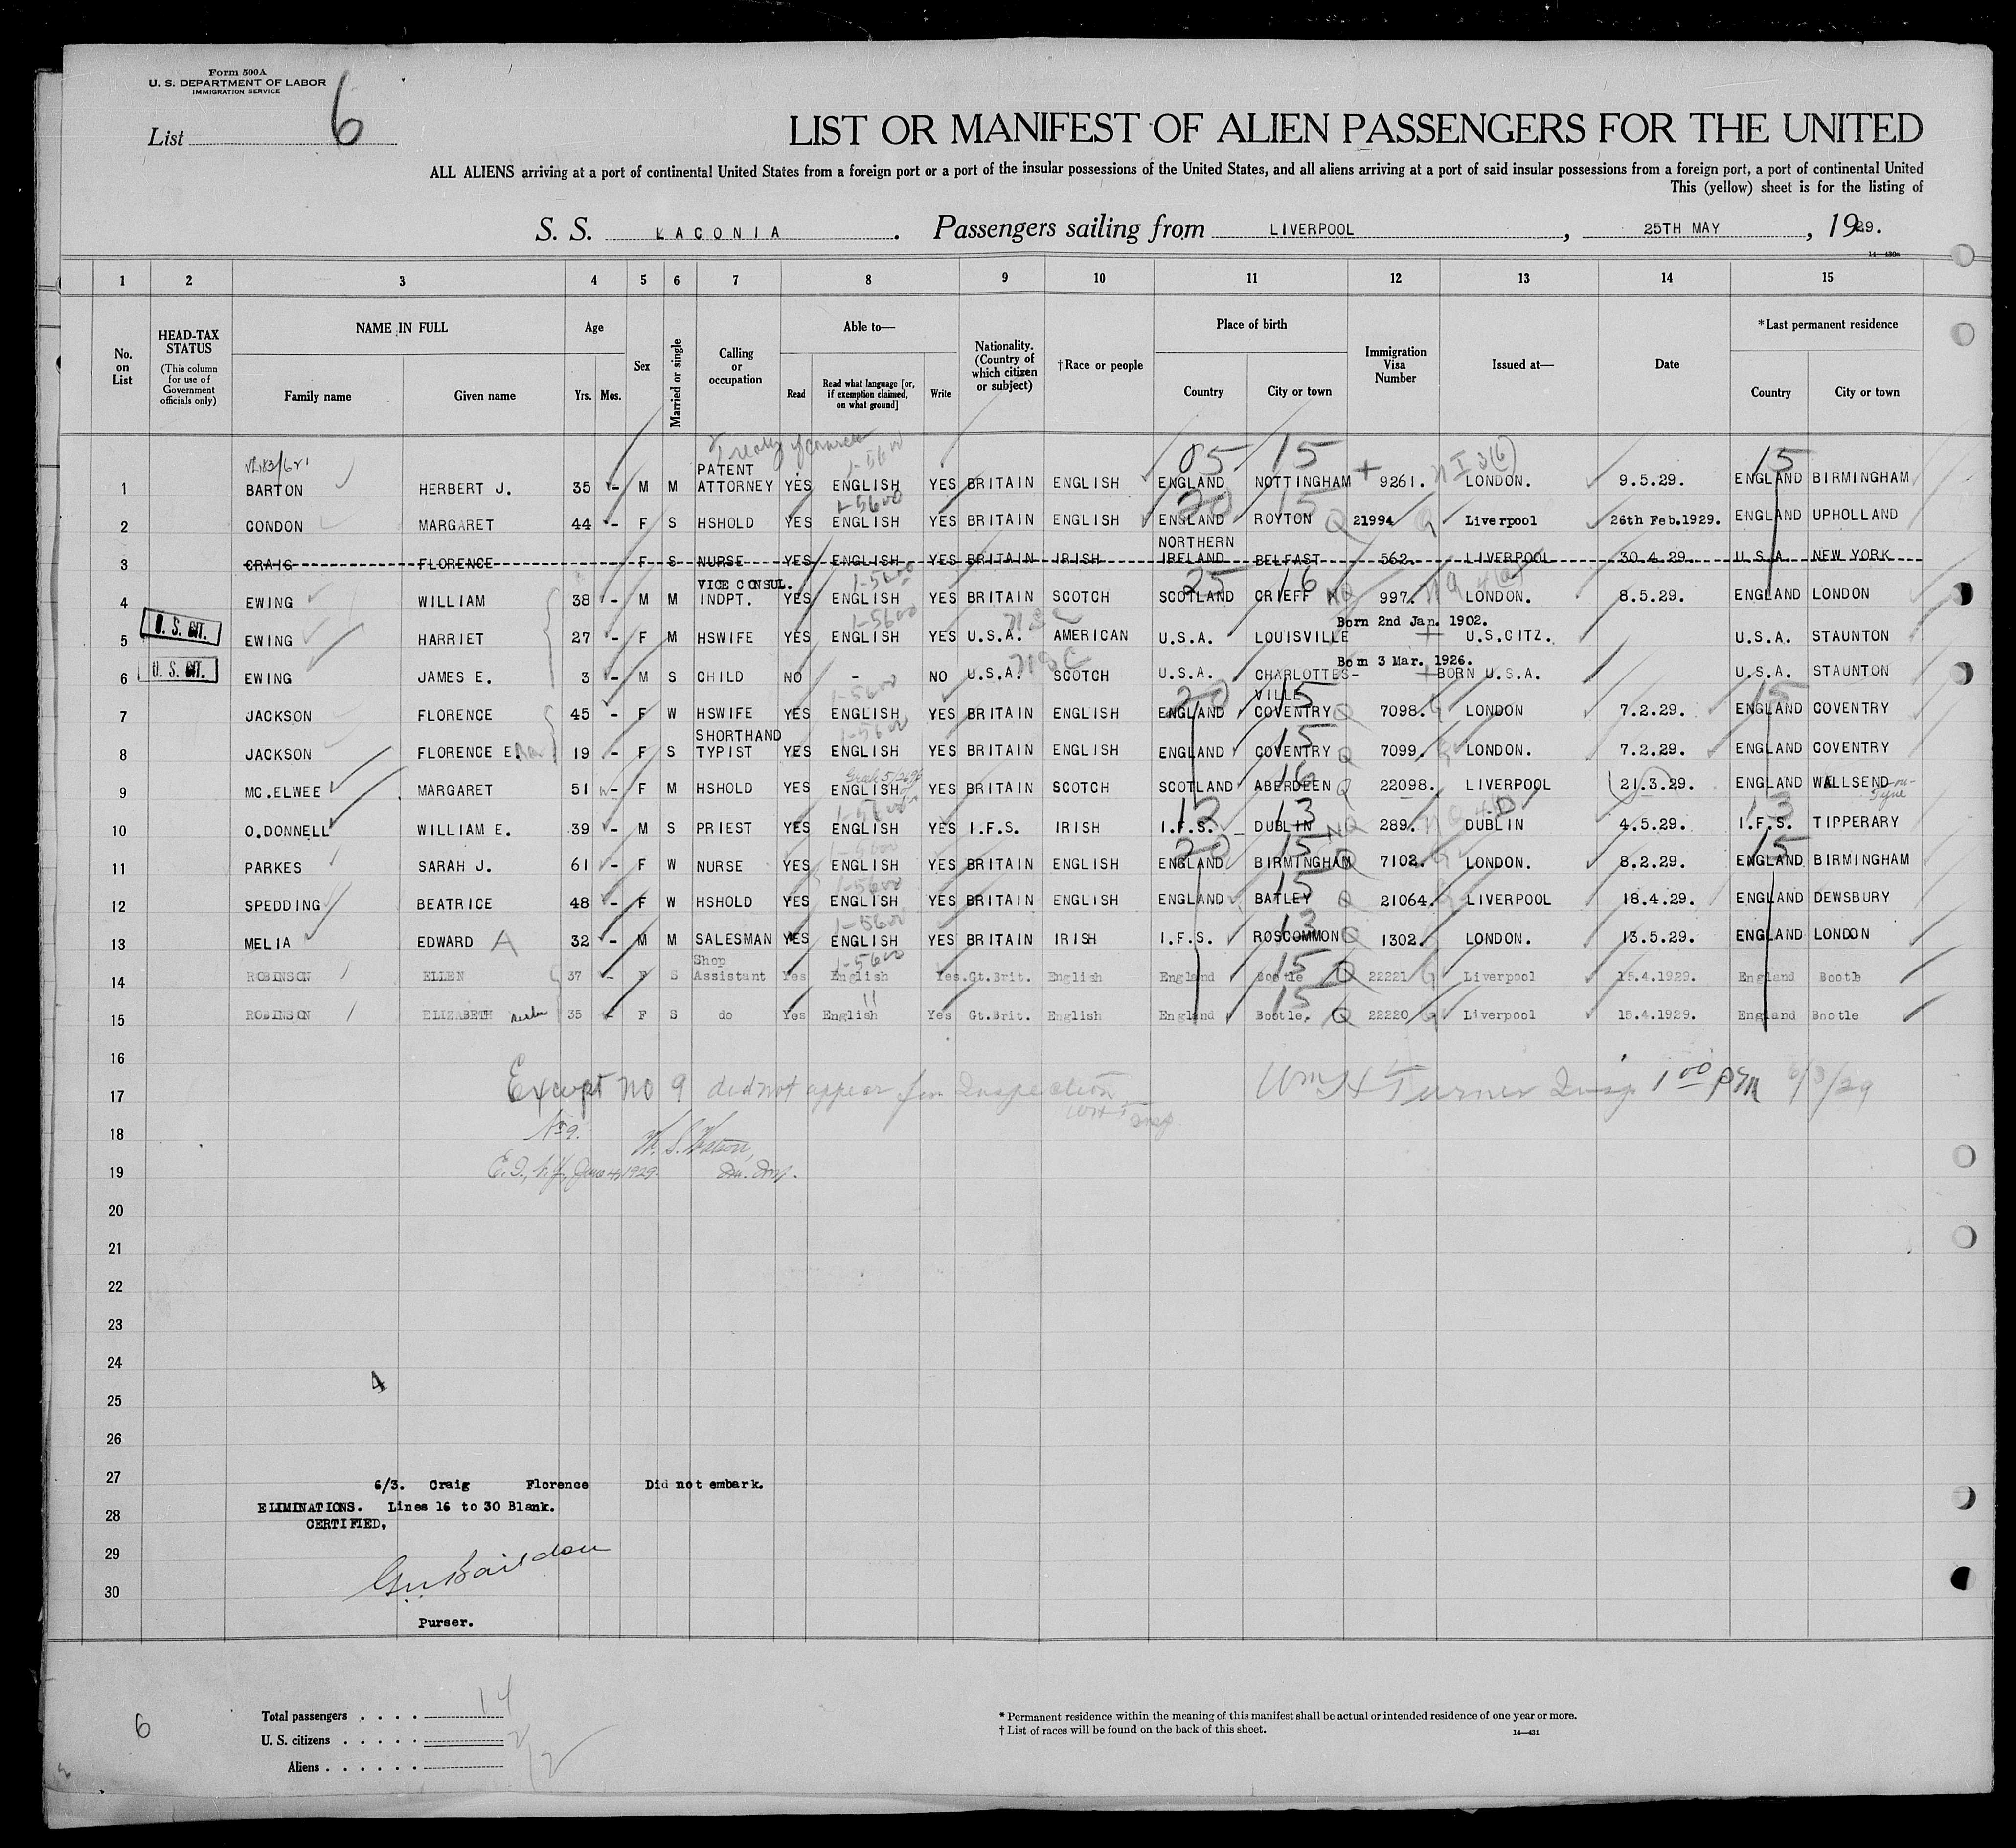 Form 500A
U. S. DEPARTMENT OF LABOR
IMMIGRATION SERVICE
List 6
LIST OR MANIFEST OF ALIEN PASSENGERS FOR THE UNITED
ALL ALIENS arriving at a port of continental United States from a foreign port or a port of the insular possessions of the United States, and all aliens arriving at a port of said insular possessions from a foreign port, a port of continental United
This (yellow) sheet is for the listing of
S. S. LACONIA. Passengers sailing from LIVERPOOL, 25TH MAY, 1929.
14—430a
1 2 3 4 5 6 7 8 9 10 11 12 13 14 15
No. on List
HEAD-TAX STATUS (This column for use of Government officials only)
NAME IN FULL
Family name Given name
Age
Yrs. Mos.
Sex
Married or single
Calling or occupation
Able to—
Read Read what language [or, if exemption claimed, on what ground] Write
Nationality. (Country of which citizen or subject)
†Race or people
Place of birth
Country City or town
Immigration Visa Number
Issued at—
Date
*Last permanent residence
Country City or town
1 BARTON HERBERT J. 35 - M M PATENT ATTORNEY YES ENGLISH YES BRITAIN ENGLISH ENGLAND NOTTINGHAM 9261. LONDON. 9.5.29. ENGLAND BIRMINGHAM
2 CONDON MARGARET 44 - F S HSHOLD YES ENGLISH YES BRITAIN ENGLISH ENGLAND ROYTON 21994 Liverpool 26th Feb.1929. ENGLAND UPHOLLAND
3 CRAIG FLORENCE F S NURSE YES ENGLISH YES BRITAIN IRISH NORTHERN IRELAND BELFAST 562. LIVERPOOL 30.4.29. U.S.A. NEW YORK
4 EWING WILLIAM 38 - M M VICE CONSUL. INDPT. YES ENGLISH YES BRITAIN SCOTCH SCOTLAND CRIEFF 997. LONDON. 8.5.29. ENGLAND LONDON
U. S. CIT.
5 EWING HARRIET 27 - F M HSWIFE YES ENGLISH YES U.S.A. AMERICAN U.S.A. LOUISVILLE Born 2nd Jan. 1902. U.S.CITZ. U.S.A. STAUNTON
U. S. CIT.
6 EWING JAMES E. 3 - M S CHILD NO - NO U.S.A. SCOTCH U.S.A. CHARLOTTES-VILLE Born 3 Mar. 1926. BORN U.S.A. U.S.A. STAUNTON
7 JACKSON FLORENCE 45 - F W HSWIFE YES ENGLISH YES BRITAIN ENGLISH ENGLAND COVENTRY 7098. LONDON 7.2.29. ENGLAND COVENTRY
8 JACKSON FLORENCE E. 19 - F S SHORTHAND TYPIST YES ENGLISH YES BRITAIN ENGLISH ENGLAND COVENTRY 7099. LONDON. 7.2.29. ENGLAND COVENTRY
9 MC.ELWEE MARGARET 51 - F M HSHOLD YES ENGLISH YES BRITAIN SCOTCH SCOTLAND ABERDEEN 22098. LIVERPOOL 21.3.29. ENGLAND WALLSEND-on-Tyne
10 O.DONNELL WILLIAM E. 39 - M S PRIEST YES ENGLISH YES I.F.S. IRISH I.F.S. DUBLIN 289. DUBLIN 4.5.29. I.F.S. TIPPERARY
11 PARKES SARAH J. 61 - F W NURSE YES ENGLISH YES BRITAIN ENGLISH ENGLAND BIRMINGHAM 7102. LONDON. 8.2.29. ENGLAND BIRMINGHAM
12 SPEDDING BEATRICE 48 - F W HSHOLD YES ENGLISH YES BRITAIN ENGLISH ENGLAND BATLEY 21064. LIVERPOOL 18.4.29. ENGLAND DEWSBURY
13 MELIA EDWARD 32 - M M SALESMAN YES ENGLISH YES BRITAIN IRISH I.F.S. ROSCOMMON 1302. LONDON. 13.5.29. ENGLAND LONDON
14 ROBINSON ELLEN 37 - F S Shop Assistant Yes English Yes. Gt.Brit. English England Bootle 22221 Liverpool 15.4.1929. England Bootle
15 ROBINSON ELIZABETH sister 35 - F S do Yes English Yes Gt.Brit. English England Bootle. 22220 Liverpool 15.4.1929. England Bootle
16
17 Except no 9 did not appear for Inspection Wm H Turner Insp 1 00 PM 6/3/29
18 No 9. W. S. Watson,
19 E.I., N.Y., June 4, 1929.
20
21
22
23
24
25
26
27 6/3. Craig Florence Did not embark.
28 ELIMINATIONS. Lines 16 to 30 Blank.
CERTIFIED,
29
30
Purser.
6
Total passengers . . . . 14
U. S. citizens . . . . . 2
Aliens . . . . . . 12
* Permanent residence within the meaning of this manifest shall be actual or intended residence of one year or more.
† List of races will be found on the back of this sheet.
14—431